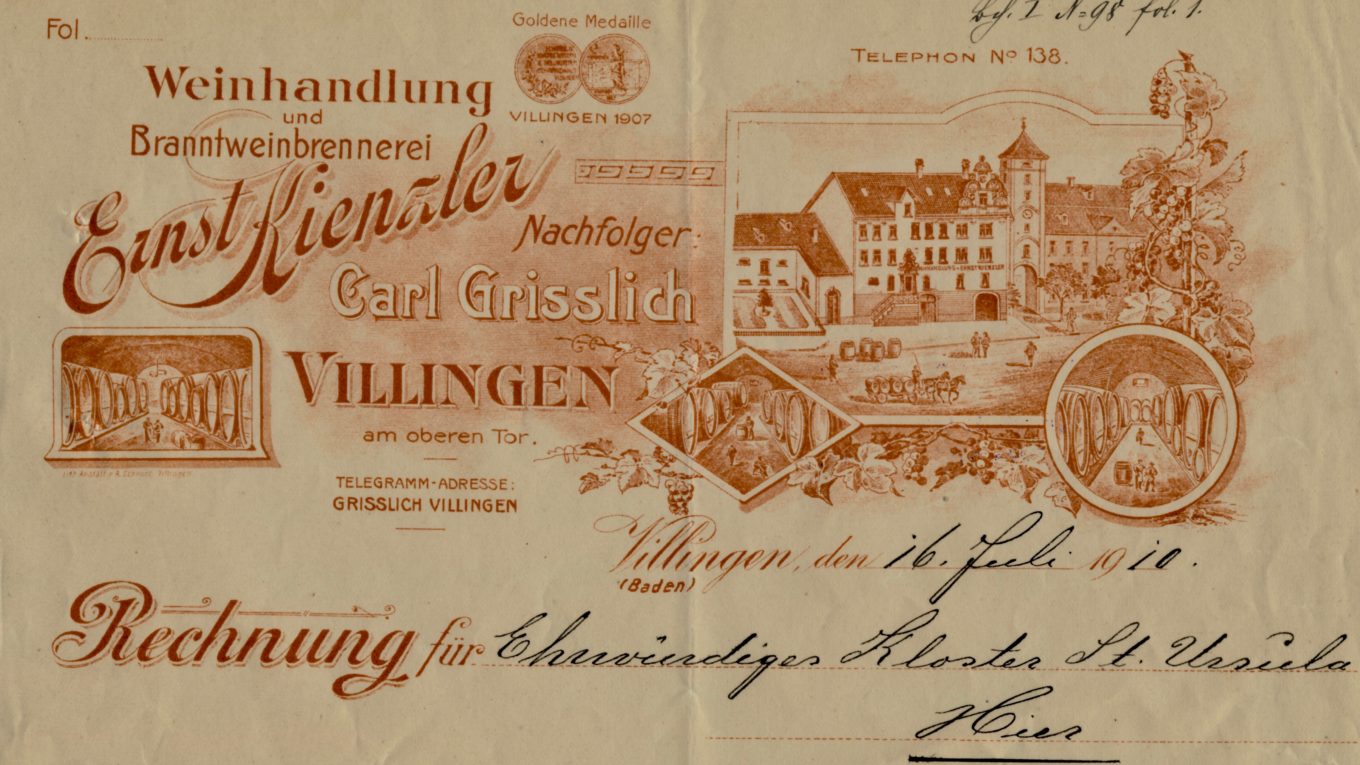 Fol.
Goldene Medaille
VILLINGEN 1907
No 98 fol. 1.
TELEPHON No 138.
Weinhandlung
und
Branntweinbrennerei
Ernst Kienzler
Nachfolger:
Carl Grisslich
VILLINGEN
am oberen Tor.
TELEGRAMM-ADRESSE:
GRISSLICH VILLINGEN
Villingen, den 16. Juli 1910.
(Baden)
Rechnung für Ehrwürdiges Kloster St. Ursula
Hier